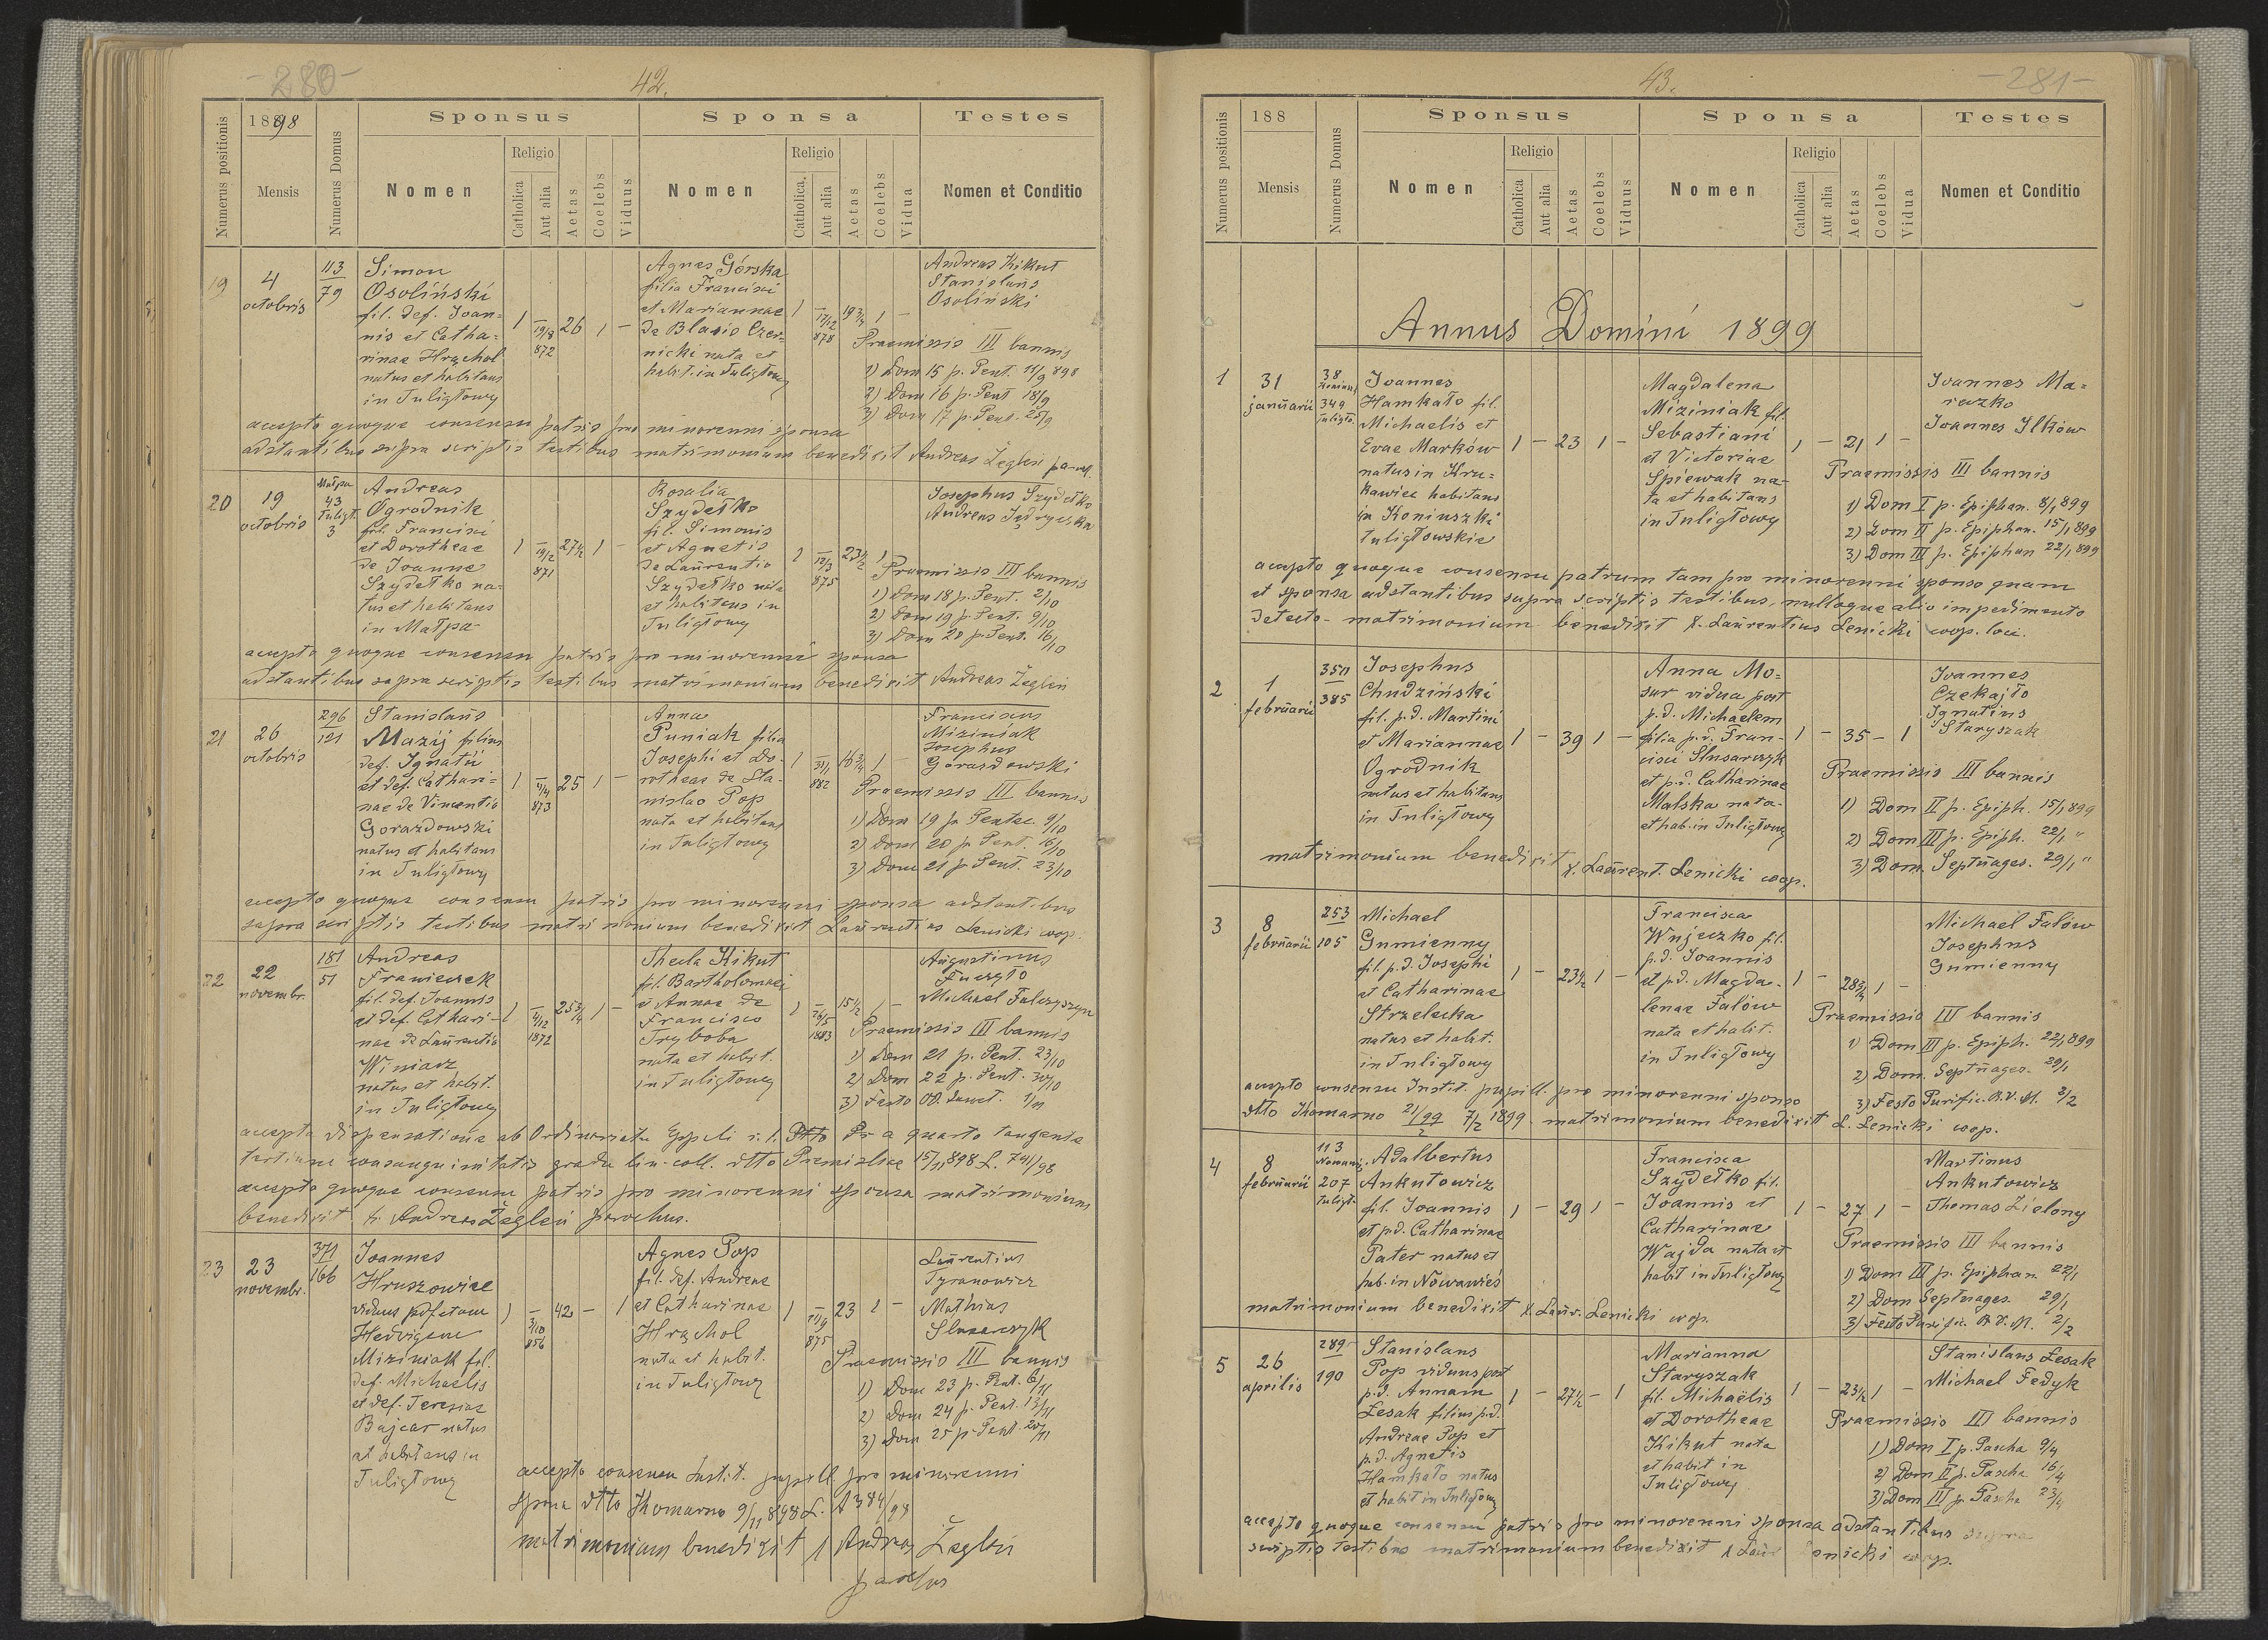 -280-
42.
Numerus positionis
1898
Mensis
Numerus Domus
Sponsus
Nomen
Religio
Catholica
Aut alia
Aetas
Coelebs
Vidus
Sponsa
Nomen
Religio
Catholica.
Aut alia
Aetas
Coelebs
Vidua
Testes
Nomen et Conditio
19
4
octobris
113
79
Simon
Osoliński
fil. def. Joan=
nis et Catha=
rinae Hrąchol
natus et habitans
in Tuligłowy
1 - 26 1 -
19/8
872
Agnes Górska
filia Francisci
et Mariannae
de Blasio Czer-
nicki nata et
habit. in Tuligłowy
1 - 19 3/4 1 -
17/12
878
Andreas Kikut
Stanislaus
Osoliński
Praemissis III bannis
1) Dom 15 p. Pent. 11/9 898
2) Dom 16 p. Pent 18/9
3) Dom 17 p. Pent. 25/9
accepto quoque consensu patris pro minorenni sponsa
adstantibus supra scriptis testibus matrimonium benedixit Andreas Żegleń par.
20
19
octobris
Małpa
43
Tuligł.
3
Andreas
Ogrodnik
fil. Francisci
et Dorotheae
de Joanne
Szydełko na-
tus et habitans
in Małpa
1 - 27 1/2 1 -
19/2
871
Rosalia
Szydełko
fil. Simonis
et Agnetis
de Laurentio
Szydełko nata
et habitans in
Tuligłowy
1 - 23 1/2 1
12/3
875
Josephus Szydełko
Andreas Jędryszka
Praemissis III bannis
1) Dom 18 p. Pent. 2/10
2) Dom 19 p. Pent. 9/10
3) Dom 20 p. Pent. 16/10
accepto quoque consensu patris pro minorenni sponsa
adstantibus supra scriptis testibus matrimonium benedixit Andreas Żegleń
21
26
octobris
296
121
Stanislaus
Mazij filius
def. Ignatii
et def. Cathari-
nae de Vincentio
Gorazdowski
natus et habitans
in Tuligłowy
1 - 25 1 -
873
Anna
Puniak filia
Josephi et Do-
rotheae de Sta-
nislao Pop
nata et habitans
in Tuligłowy
1 - 16 3/4 1 -
31/1
882
Franciscus
Miziniak
Josephus
Gorazdowski
Praemissis III bannis
1) Dom 19 p. Pentec. 9/10
2) Dom 20 p. Pent. 16/10
3) Dom 21 p. Pent. 23/10
accepto quoque consensu patris pro minorenni sponsa adstantibus
supra scriptis testibus matrimonium benedixit Laurentius Lenicki coop.
22
22
novembr.
181
51
Andreas
Franieczek
fil. def. Joannis
et def. Cathari-
nae de Laurentio
Winiarz
natus et habit.
in Tuligłowy
1 - 25 3/4 1 -
4/12
1872
Thecla Kikut
fil. Bartholomaei
et Annae de
Francisco
Tryboba
nata et habit.
in Tuligłowy
1 - 15 1/2 1 -
26/5
1883
Augustinus
Michael Falczyszyn
Praemissis III bannis
1) Dom 21 p. Pent. 23/10
2) Dom 22 p. Pent. 30/10
3) Festo OO. Sanct. 1/11
accepta dispensatione ab Ordinariatu Eppli r. l. Pr a quarto tangente
tertium consanguinitatis gradu lin. coll. dtto Premisliae 15/11 898 L. 741/98
accepto quoque consensu patris pro minorenni sponsa matrimonium
benedixit x. Andreas Żegleń parochus.
23
23
novembr.
371
166
Joannes
Hruszowiec
viduus p defctam
Hedvigem
Miziniak fil.
def. Michaelis
et def. Teresiae
Bajcar natus
et habitans in
Tuligłowy
1 - 42 - 1
3/10
856
Agnes Pop
fil. def. Andreae
et Catharinae
Hrąchol
nata et habit.
in Tuligłowy
1 - 23 1 -
875
Laurentius
Tyranowicz
Mathias
Slusarczyk
Praemissis III bannis
1) Dom 23 p. Pent. 6/11
2) Dom 24 p. Pent. 13/11
3) Dom 25 p. Pent. 20/11
accepto consensu Instit. pupill. pro minorenni
sponsa dtto Komarno 9/11 898 L. A 384/98
matrimonium benedixit x Andreas Żegleń
parochus
43.
-281-
Numerus positionis
188
Mensis
Numerus Domus
Sponsus
Nomen
Religio
Catholica
Aut alia
Aetas
Coelebs
Vidus
Sponsa
Nomen
Religio
Catholica
Aut alia
Aetas
Coelebs
Vidua
Testes
Nomen et Conditio
Annus Domini 1899
1
31
januarii
38
349
Tuligło.
Joannes
Hamkało fil.
Michaelis et
Evae Marków
natus in Kru=
kawiec habitans
in Koniuszki
tuligłowskie
1 - 23 1 -
Magdalena
Miziniak fil.
Sebastiani
et Victoriae
Śpiewak na-
ta et habitans
in Tuligłowy
1 - 21 1 -
Joannes Ma=
reczko
Joannes Ilków
Praemissis III bannis
1) Dom I p. Epiphan. 8/1 899
2) Dom II p. Epiphan. 15/1 899
3) Dom III p. Epiphan 22/1 899
accepto quoque consensu patrum tam pro minorenni sponso quam
et sponsa adstantibus supra scriptis testibus, nulloque alio impedimento
detecto - matrimonium benedixit X. Laurentius Lenicki coop. loci.
2
1
februarii
350
385
Josephus
Chudziński
fil. p.d. Martini
et Mariannae
Ogrodnik
natus et habitans
in Tuligłowy
1 - 39 1 -
Anna Mo=
sur vidua post
p.d. Michaelem
filia p.d. Fran-
cisci Slusarczyk
et p.d. Catharinae
Malska nata
et hab. in Tuligłowy
1 - 35 - 1
Joannes
Czekajło
Ignatius
Staryszak
Praemissis III bannis
1) Dom II p. Epiph. 15/1 899
2) Dom III p. Epiph. 22/1 "
3) Dom. Septuages. 29/1 "
matrimonium benedixit X. Laurent. Lenicki coop.
3
8
februarii
253
105
Michael
Gumienny
fil. p.d. Josephi
et Catharinae
Strzelecka
natus et habit.
in Tuligłowy
1 - 23 1/2 1 -
Francisca
Wujeczko fil.
p.d. Joannis
et p.d. Magda-
lenae Falów
nata et habit.
in Tuligłowy
1 - 28 3/4 1 -
Michael Falów
Josephus
Gumienny
Praemissis III bannis
1) Dom III p. Epiph. 22/1 899
2) Dom. Septuages. 29/1
3) Festo Purific. B.V.M. 2/2
accepto consensu Instit. pupill. pro minorenni sponso
dtto Komarno 21/99 7/2 1899. matrimonium benedixit L. Lenicki coop.
4
8
februarii
113
207
Tuligł.
Adalbertus
Ankutowicz
fil. Joannis
et p.d. Catharinae
Pater natus et
hab. in Nowawieś
1 - 29 1 -
Francisca
Szydełko fil.
Joannis et
Catharinae
Wajda nata et
habit in Tuligłowy
1 - 27 1 -
Martinus
Ankutowicz
Thomas Zielony
Praemissis III bannis
1) Dom III p. Epiphan. 22/1
2) Dom Septuages. 29/1
3) Festo Purific. B.V.M. 2/2
matrimonium benedixit X. Laur. Lenicki cop.
5
26
aprilis
289
190
Stanislaus
Pop viduus post
p.d. Annam
Lesak filius p.d.
Andreae Pop et
p.d. Agnetis
Hamkało natus
et habit in Tuligłowy
1 - 27 1/2 - 1
Marianna
Staryszak
fil. Michaëlis
et Dorotheae
Kikut nata
et habit in
Tuligłowy
1 - 23 1/2 1 -
Stanislaus Lesak
Michael Fedyk
Praemissis III bannis
1) Dom I p. Pascha 9/4
2) Dom II p. Pascha 16/4
3) Dom III p. Pascha 23/4
accepto quoque consensu patris pro minorenni sponsa adstantibus supra
scriptis testibus matrimonium benedixit X Laur Lenicki coop.